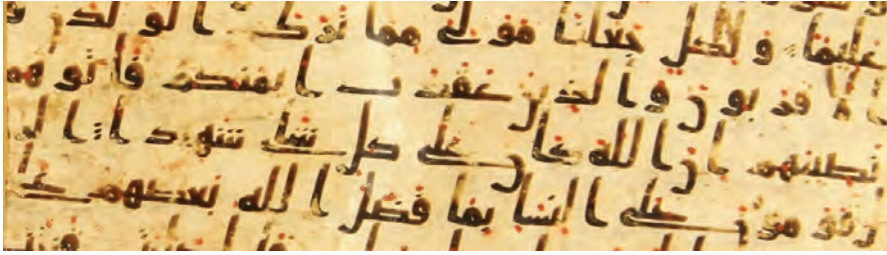 عليما ولكل جعلنا مولى مما ترك الولد
ا لا قربون والذين عقدت ايمنكم فاتوهم
نصيبهم ان الله كان على كل شىء شهيدا ال
مون على النسا بما فضل الله بعضهم على